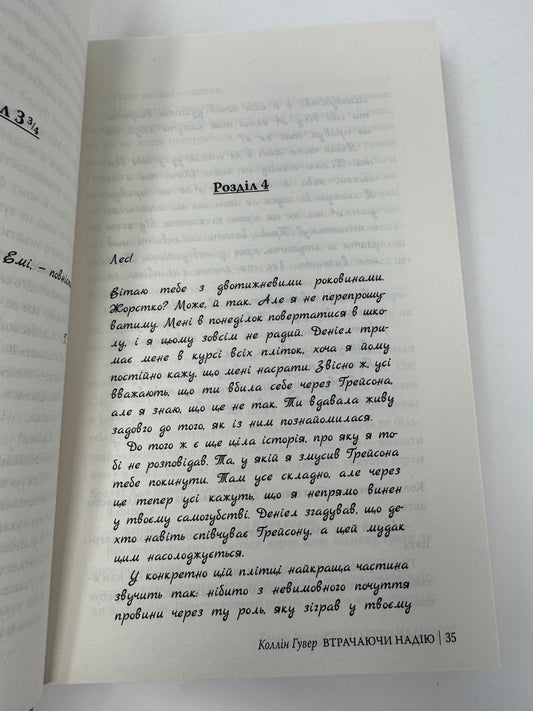 л 3 ¾
Емі, – повніст
Розділ 4
Лес!
Вітаю тебе з двотижневими роковинами.
Жорстко? Може, й так. Але я не перепрошу-
ватиму. Мені в понеділок повертатися в шко-
лу, і я цьому зовсім не радий. Деніел три-
має мене в курсі всіх пліток, хоча я йому
постійно кажу, що мені насрати. Звісно ж, усі
вважають, що ти вбила себе через Ґрейсона,
але я знаю, що це не так. Ти вдавала живу
задовго до того, як із ним познайомилася.
До того ж є ще ціла історія, про яку я то-
бі не розповідав. Та, у якій я змусив Ґрейсона
тебе покинути. Там усе складно, але через
це тепер усі кажуть, що я непрямо винен
у твоєму самогубстві. Деніел згадував, що де-
хто навіть співчуває Ґрейсону, а цей мудак
цим насолоджується.
У конкретно цій плітці найкраща частина
звучить так: нібито з невимовного почуття
провини через ту роль, яку зіграв у твоєму
Коллін Гувер ВТРАЧАЮЧИ НАДІЮ | 35